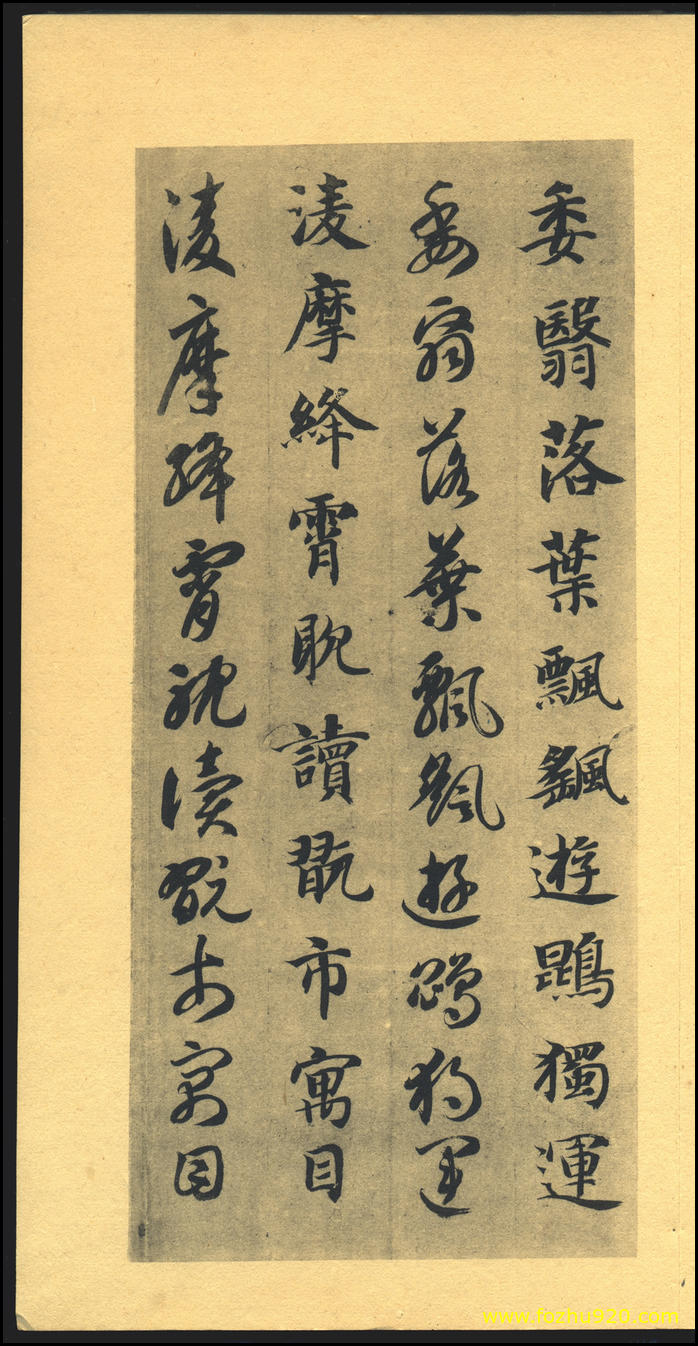 委翳落葉飄颻遊鵾獨運
委翳落葉飄颻遊鵾獨運
淩摩絳霄耽讀翫市寓目
淩摩絳霄耽讀翫市寓目
www.fozhu920.com